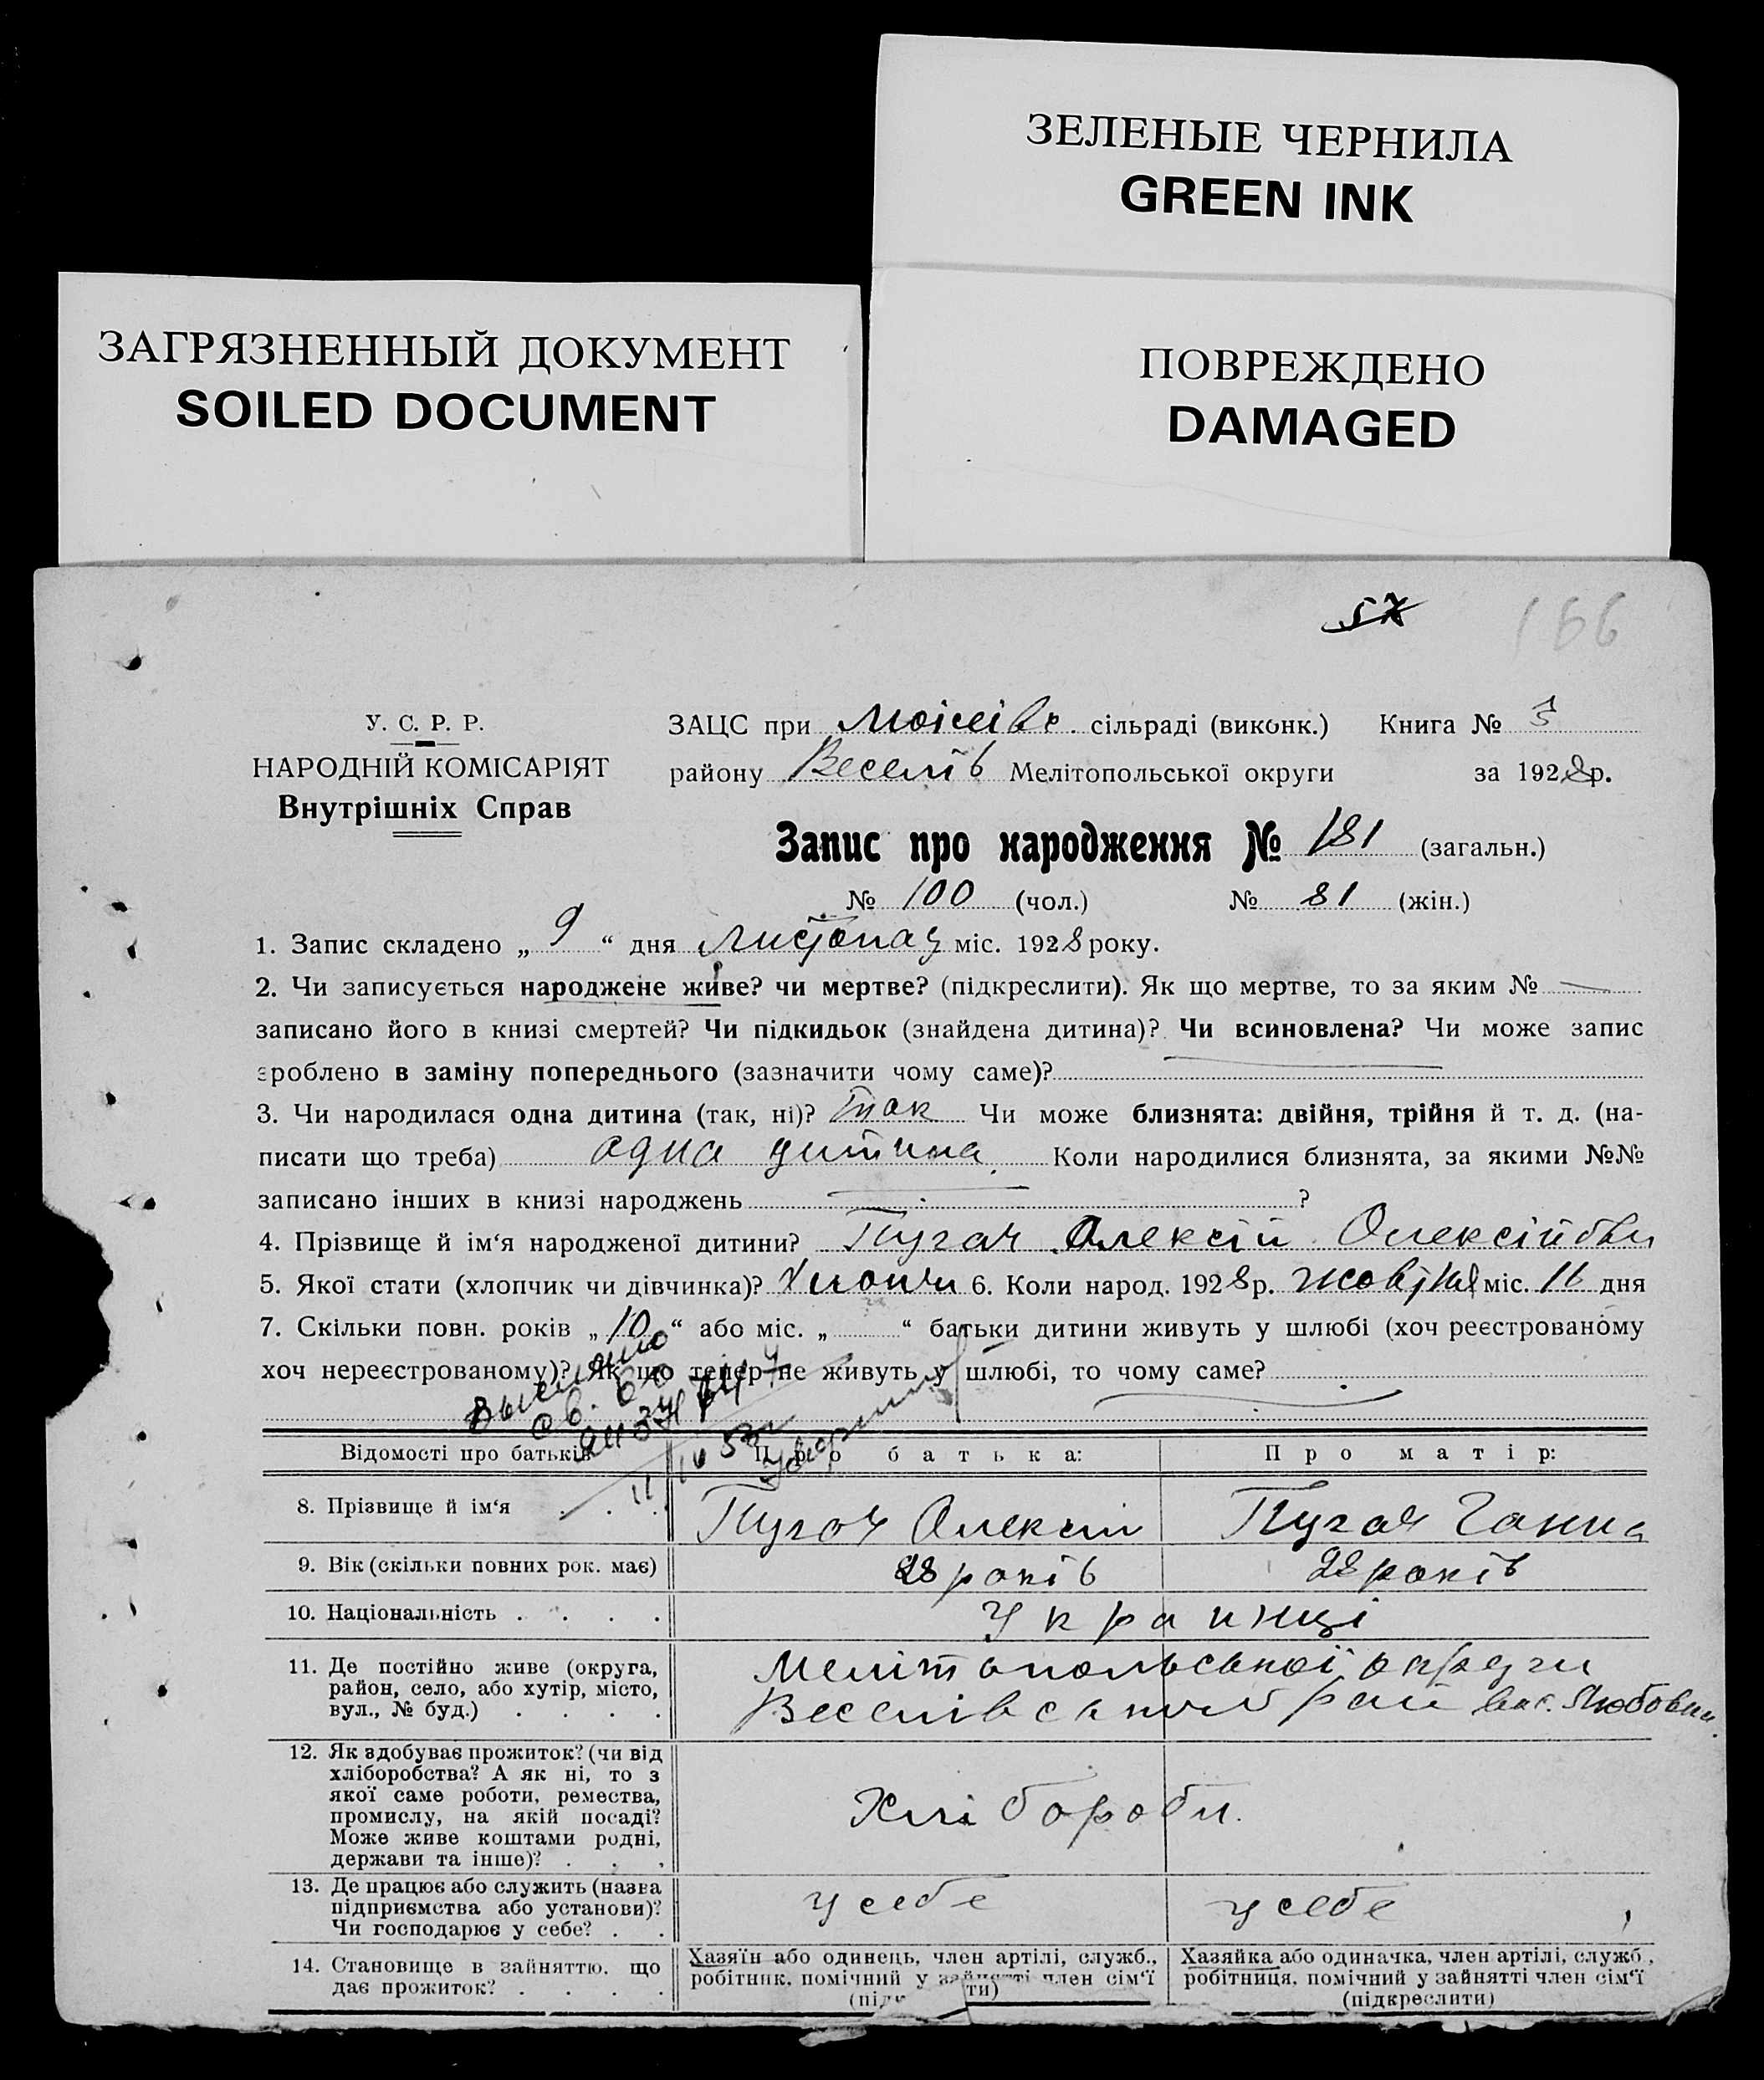 ЗЕЛЕНЫЕ ЧЕРНИЛА
GREEN INK
ЗАГРЯЗНЕННЫЙ ДОКУМЕНТ
SOILED DOCUMENT
ПОВРЕЖДЕНО
DAMAGED
57 166
У. С. Р. Р.
НАРОДНІЙ КОМІСАРІЯТ
Внутрішніх Справ
ЗАЦС при Моісеівк. сільраді (виконк.) Книга № 3
району Веселів Мелітопольської округи за 1928 р.
Запис про народження № 181 (загальн.)
№ 100 (чол.) № 81 (жін.)
1. Запис складено „ 9 “ дня листопад міс. 1928 року.
2. Чи записується народжене живе? чи мертве? (підкреслити). Як що мертве, то за яким № —
записано його в книзі смертей? Чи підкидьок (знайдена дитина)? Чи всиновлена? Чи може запис
зроблено в заміну попереднього (зазначити чому саме)?
3. Чи народилася одна дитина (так, ні)? так Чи може близнята: двійня, трійня й т. д. (на-
писати що треба) одна дитина Коли народилися близнята, за якими №№
записано інших в книзі народжень ?
4. Прізвище й ім‘я народженої дитини? Пугач Олексій Олексійови
5. Якої стати (хлопчик чи дівчинка)? Хлопчи 6. Коли народ. 1928 р. жовтня міс. 16 дня
7. Скільки повн. років „ 10 “ або міс. „ “ батьки дитини живуть у шлюбі (хоч реєстрованому
хоч нереєстрованому)? Як що тепер не живуть у шлюбі, то чому саме?
Відомості про батьків Про батька: Про матір:
8. Прізвище й ім‘я Пугач Олексій Пугач Ганна
9. Вік (скільки повних рок. має) 28 років 28 років
10. Національність Украинці
11. Де постійно живе (округа,
район, село, або хутір, місто,
вул., № буд.)
Мелітопольської округи
Веселівського рай
12. Як здобуває прожиток? (чи від
хліборобства? А як ні, то з
якої саме роботи, ремества,
промислу, на якій посаді?
Може живе коштами родні,
держави та інше)?
Хлібороби.
13. Де працює або служить (назва
підприємства або установи)?
Чи господарює у себе?
у себе у себе
14. Становище в зайняттю, що
дає прожиток?
Хазяїн або одинець, член артілі, служб.,
робітник, помічний у зайнятті член сім‘ї
Хазяйка або одиначка, член артілі, служб.,
робітниця, помічний у зайнятті член сім‘ї
(підкреслити)